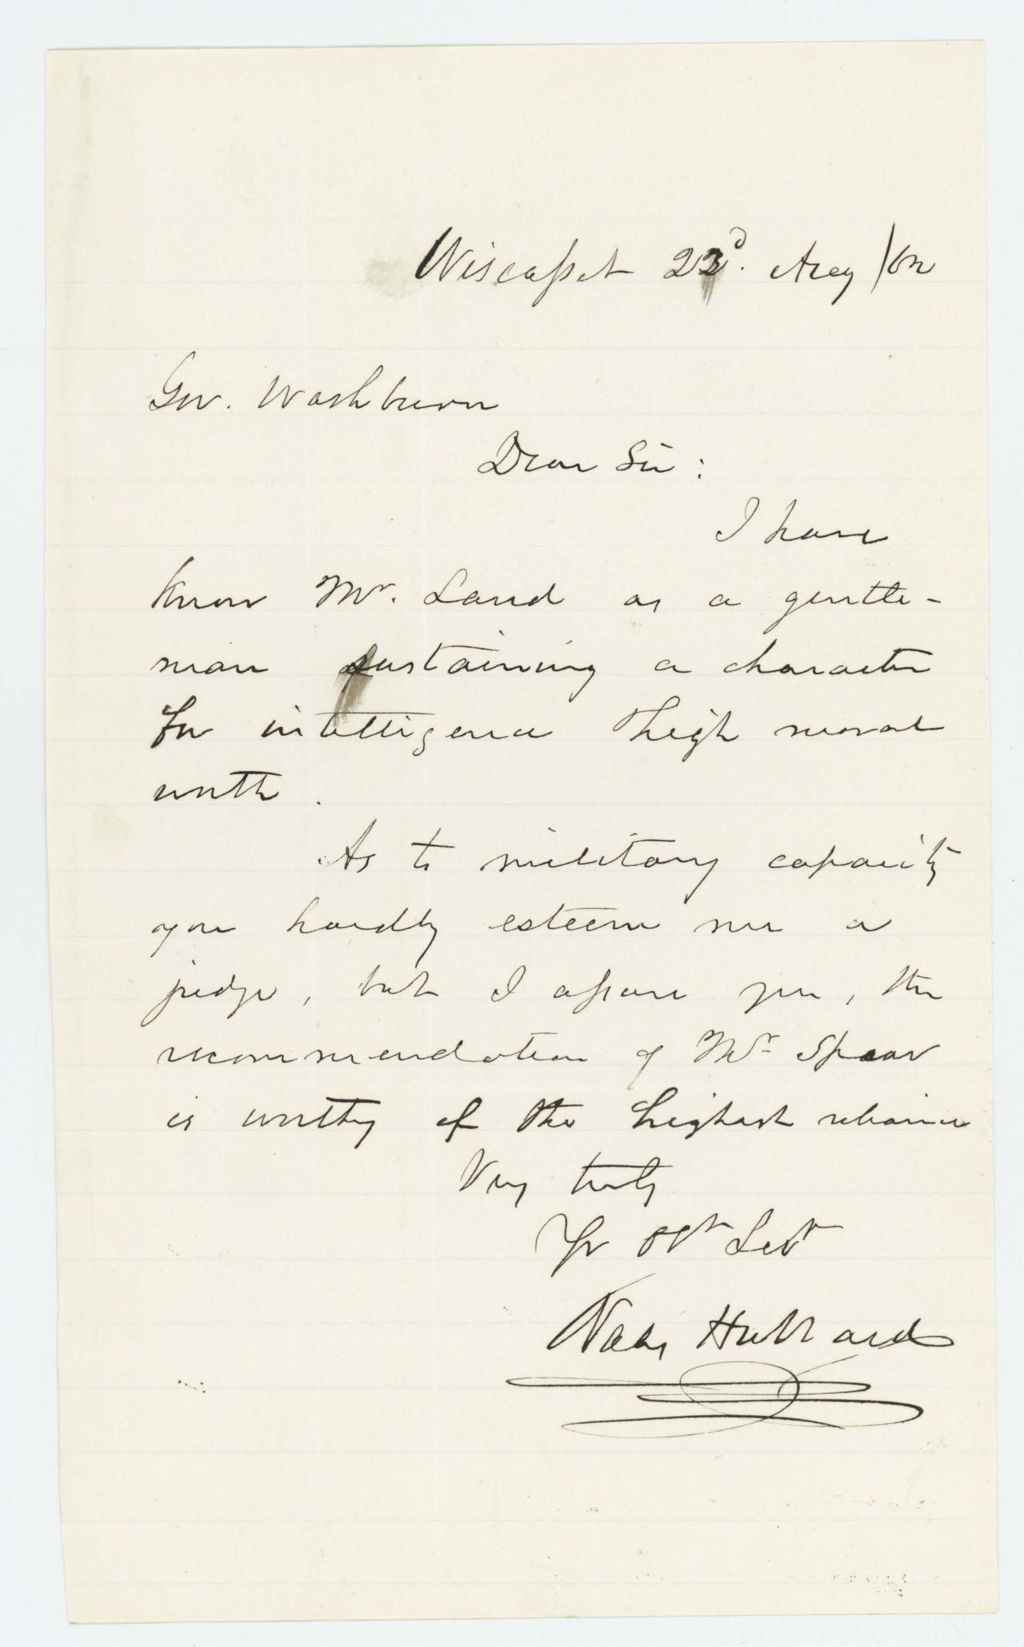 Wiscasset 23d. Aug /62
Gov. Washburn
Dear Sir:
I have
know Mr. Land as a gentle-
man sustaining a character
for intelligence & high moral
worth.
As to military capacity
you hardly esteem me a
judge, but I assure you, the
recommendation of Mr. Spear
is worthy of the highest reliance
Very truly
Yr Obt Sevt
Hubbard